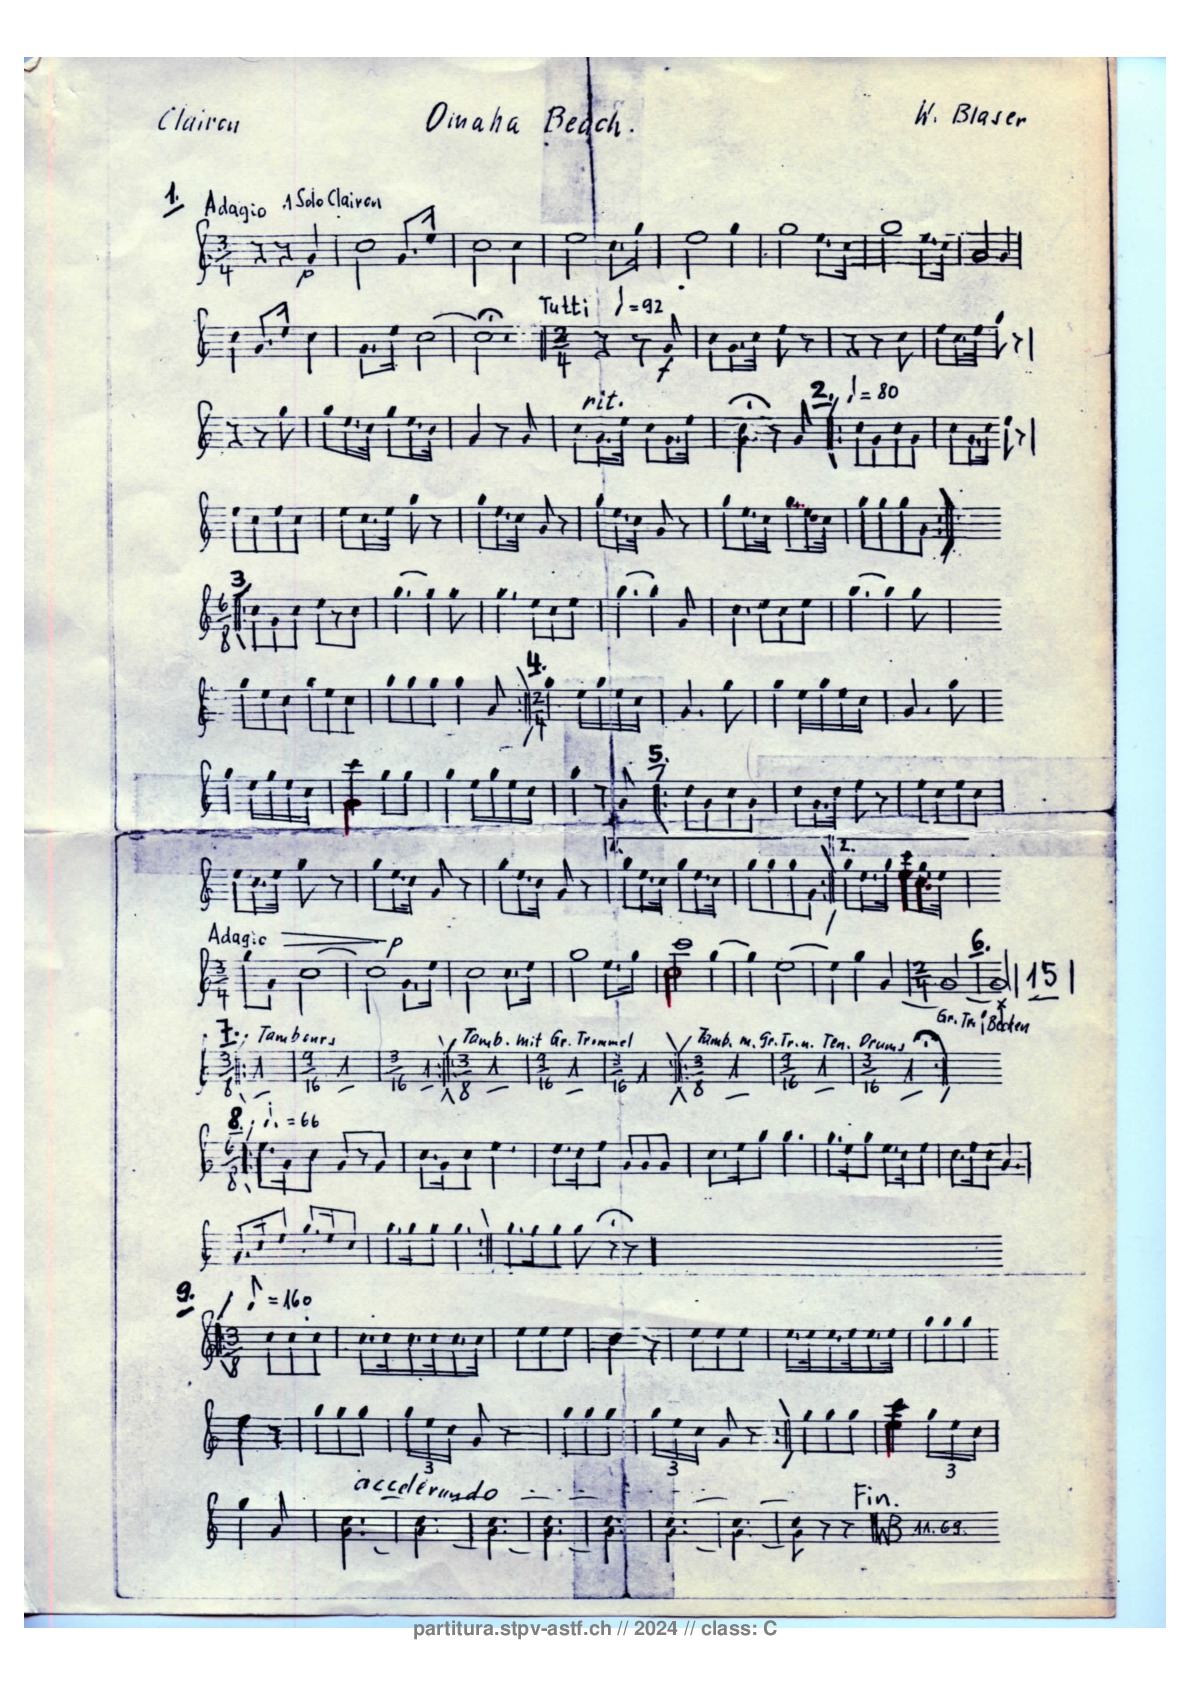 Clairon Omaha Beach. W. Blaser
1. Adagio 1 Solo Clairon
3/4 p
Tutti ♩=92
2/4 f
rit. 2. ♩=80
3.
6/8
4.
2/4
5.
1. 2.
Adagio p 6.
3/4 2/4 15
Gr. Tr. Becken
7. Tambours Tamb. mit Gr. Trommel Tamb. m. Gr. Tr. u. Ten. Drums
3/8 1 9/16 1 3/16 1 3/8 1 9/16 1 3/16 1 3/8 1 9/16 1 3/16 1
8. ♩. = 66
6/8
9. ♪ = 160
3/8
3 3 3
accelerando Fin.
WB 11.69.
partitura.stpv-astf.ch // 2024 // class: C